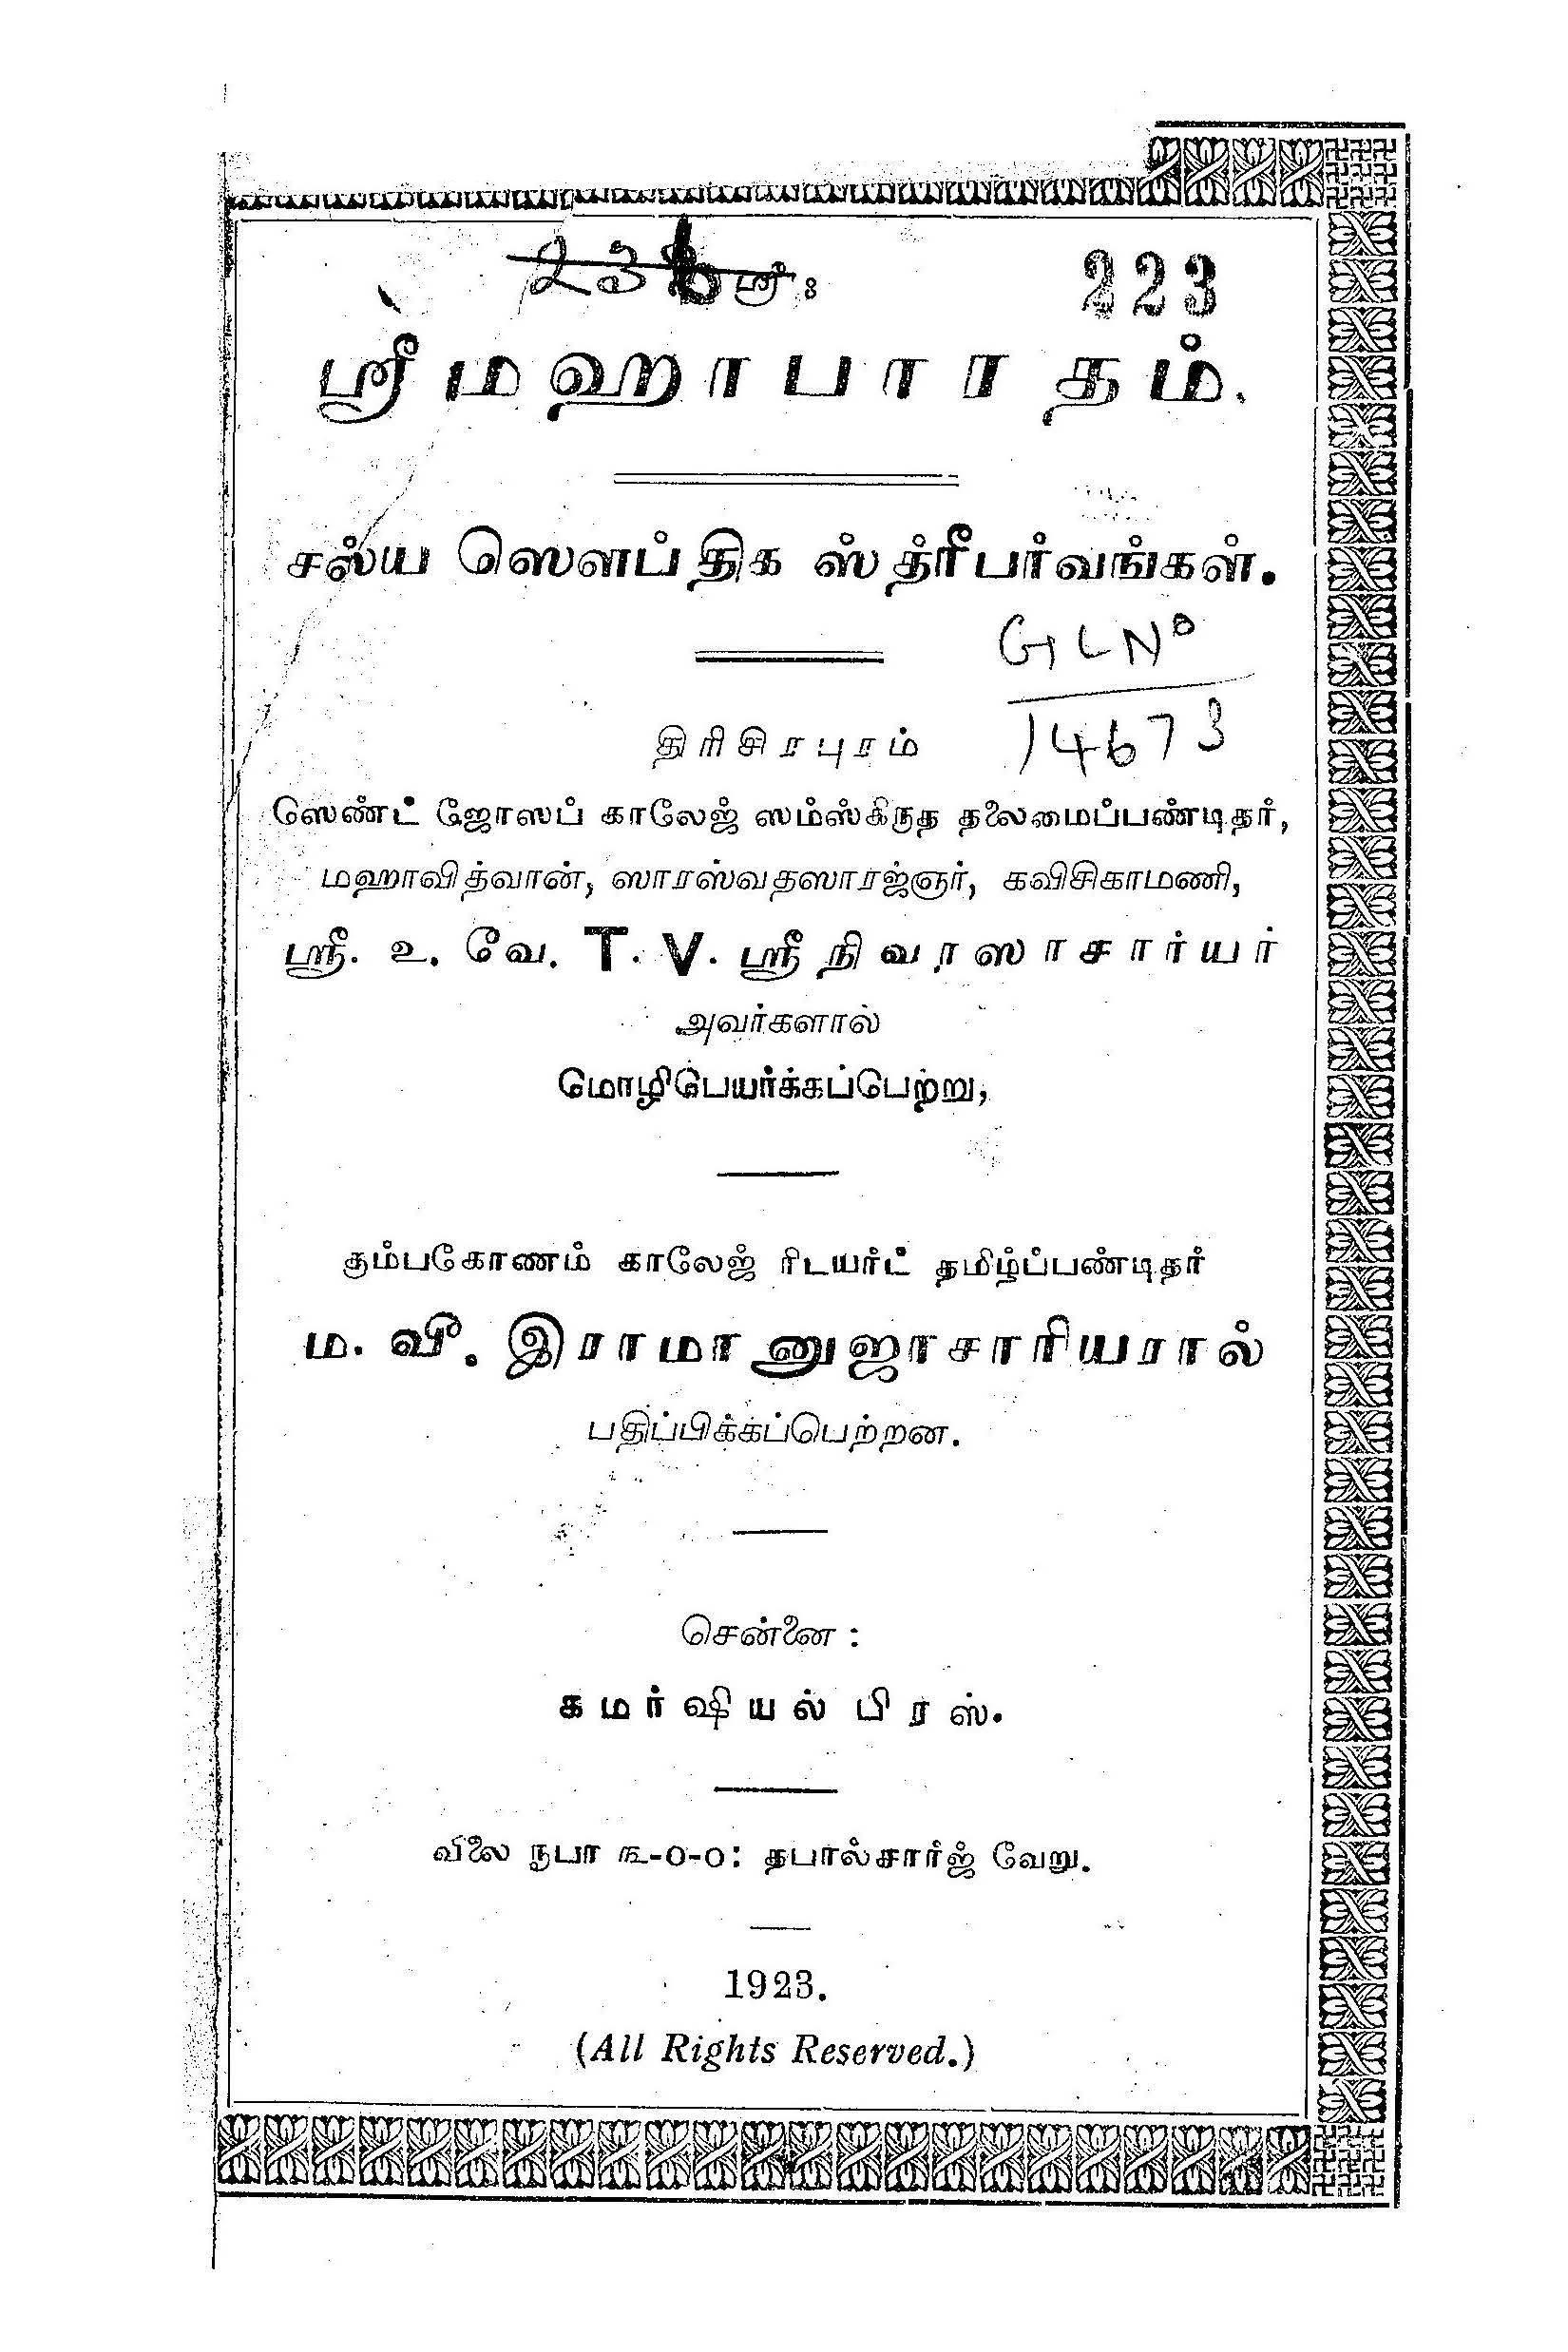 223
ஸ்ரீமஹாபாரதம்.
சல்ய ஸௌப்திக ஸ்த்ரீபர்வங்கள்.
GLNo
14673
திரிசிரபுரம்
ஸெண்ட் ஜோஸப் காலேஜ் ஸம்ஸ்கிருத தலைமைப்பண்டிதர்,
மஹாவித்வான், ஸாரஸ்வதஸாரஜ்ஞர், கவிசிகாமணி,
ஸ்ரீ. உ. வே. T. V. ஸ்ரீநிவாஸாசார்யர்
அவர்களால்
மொழிபெயர்க்கப்பெற்று,
கும்பகோணம் காலேஜ் ரிடயர்ட் தமிழ்ப்பண்டிதர்
ம. வீ. இராமானுஜாசாரியரால்
பதிப்பிக்கப்பெற்றன.
சென்னை :
கமர்ஷியல் பிரஸ்.
விலை ரூபா ௩-0-0: தபால்சார்ஜ் வேறு.
1923.
(All Rights Reserved.)